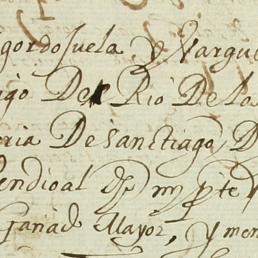 gordojuela, y Vargue
igo Del Rio De La
oria De sanctiago, D
endio al Dho mi pte
Ganad Mayor, y men